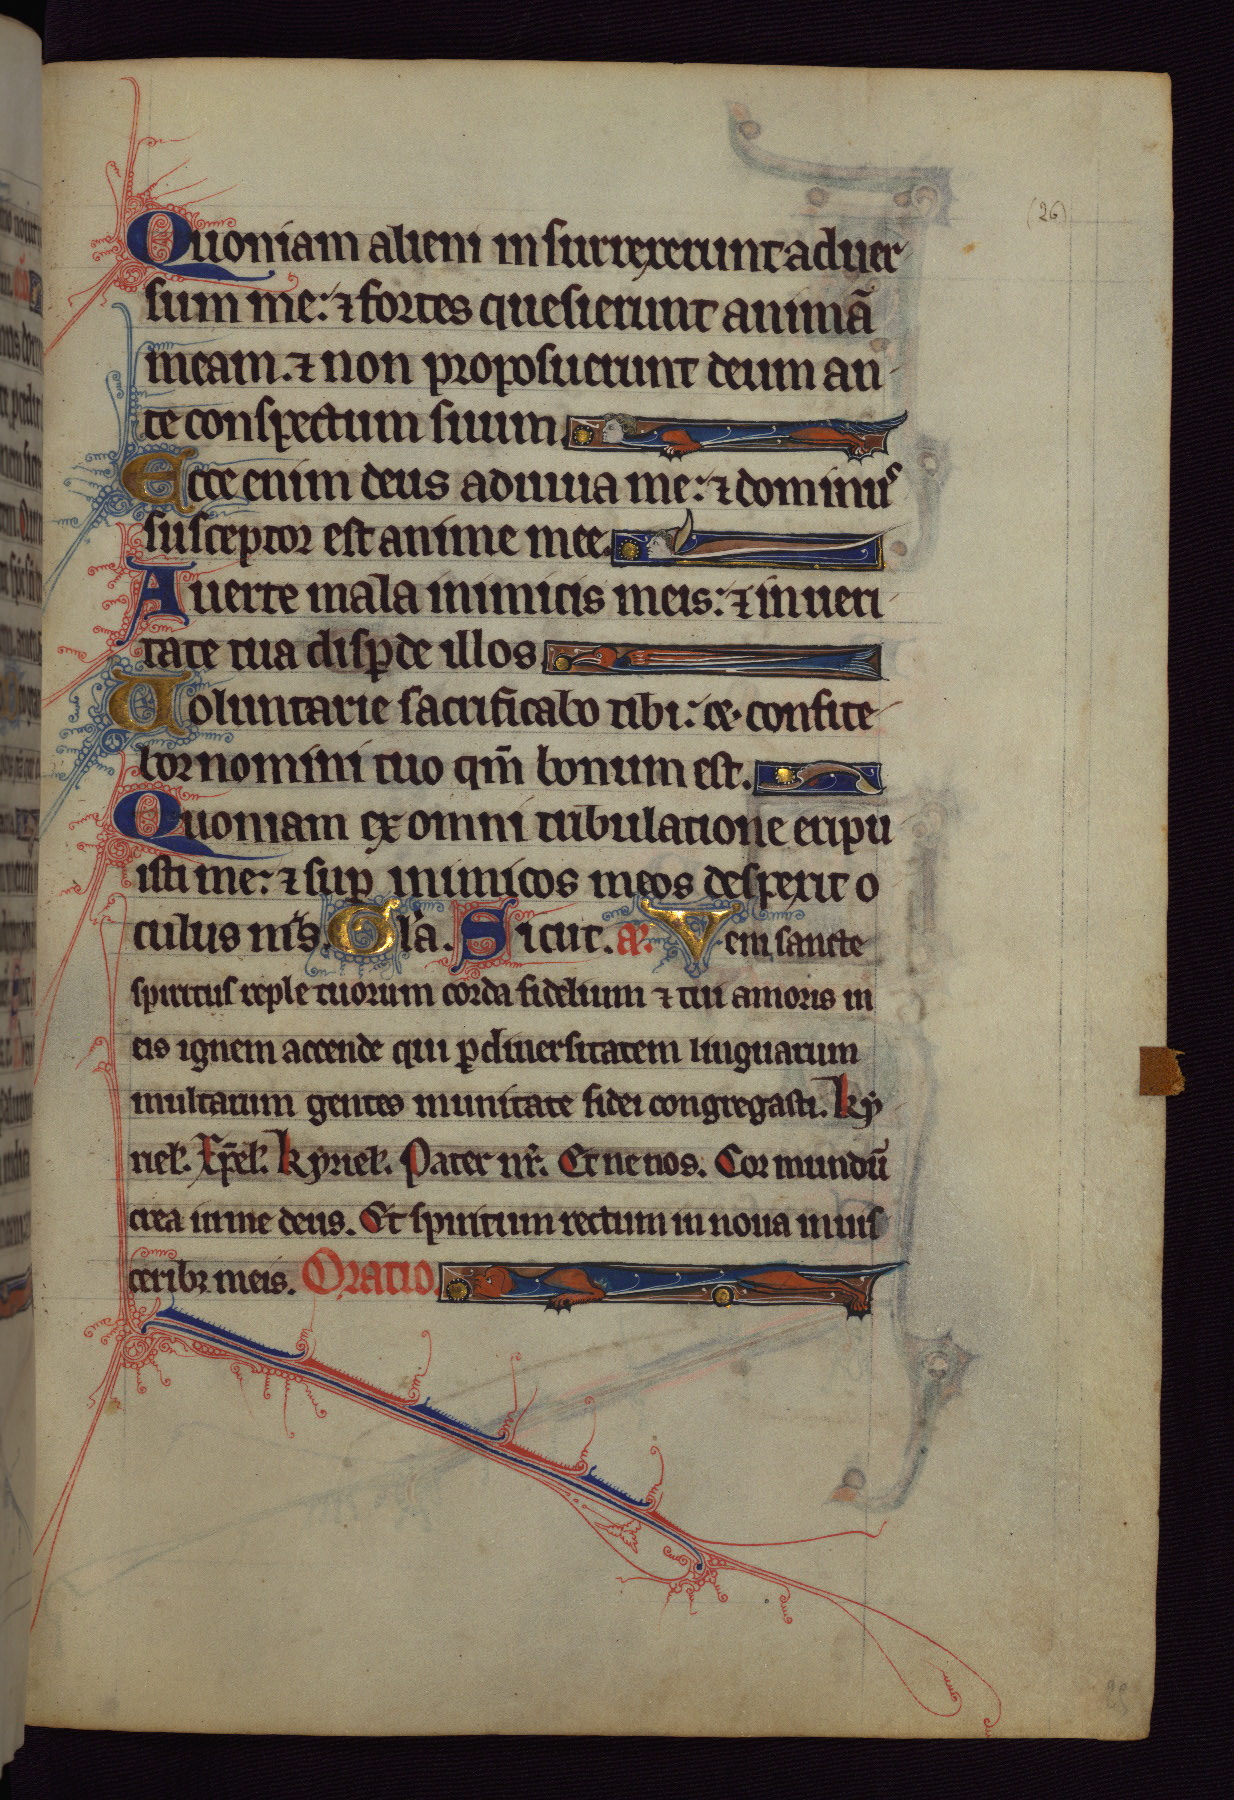 (26)
Quoniam alieni insurrexerunt aduer
sum me: ⁊ fortes quesierunt animā
meam. ⁊ non proposuerunt deum an
te conspectum suum.
Ecce enim deus adiuua me: ⁊ dominus
susceptor est anime mee.
Auerte mala inimicis meis: ⁊ in ueri
tate tua disꝑde illos
Uoluntarie sacrificabo tibi: et confite
bor nomini tuo qm̄ bonum est.
Quoniam ex omni tribulatione eripu
isti me: ⁊ suꝑ inimicos meos despexit o
culus ms. Gla. Sicut. an. Veni sancte
spiritus reple tuorum corda fidelium ⁊ tui amoris in
eis ignem accende qui ꝑ diuersitatem linguarum
multarum gentes in unitate fidei congregasti. ky
riel. xp̄el. kyriel. Pater nr. Et ne nos. Cor mundū
crea in me deus. Et spiritum rectum in noua in uis
ceribꝫ meis. Oratio.
25